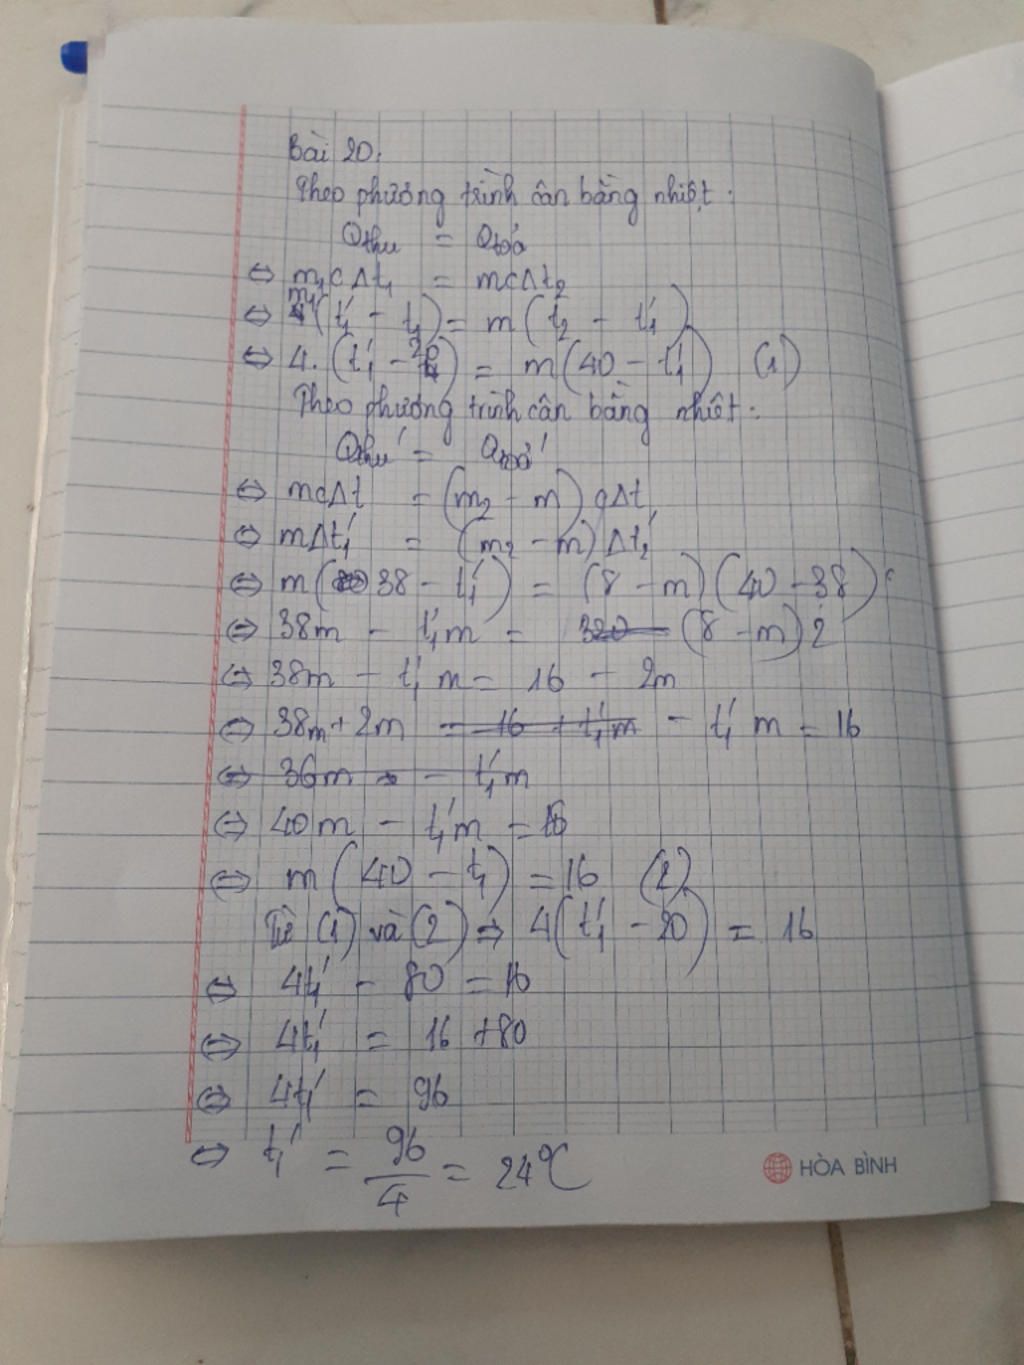 Bài 20:
Theo phương trình cân bằng nhiệt:
Qthu = Qtoả
⇔ m₁cΔt₁ = mcΔt₂
⇔ m₁(t₁' - t₁) = m(t₂ - t₁')
⇔ 4.(t₁' - 20) = m(40 - t₁') (1)
Theo phương trình cân bằng nhiệt:
Qthu' = Qtoả'
⇔ mcΔt = (m₂ - m) cΔt
⇔ mΔt₁' = (m₂ - m) Δt₂'
⇔ m(38 - t₁') = (8 - m)(40 - 38)
⇔ 38m - t₁'m = (8 - m)2
⇔ 38m - t₁'m = 16 - 2m
⇔ 38m + 2m - t₁'m = 16
⇔ 36m - t₁'m
⇔ 40m - t₁'m = 16
⇔ m(40 - t₁') = 16 (2)
Từ (1) và (2) ⇒ 4(t₁' - 20) = 16
⇔ 4t₁' - 80 = 16
⇔ 4t₁' = 16 + 80
⇔ 4t₁' = 96
⇔ t₁' = 96/4 = 24°C
HÒA BÌNH